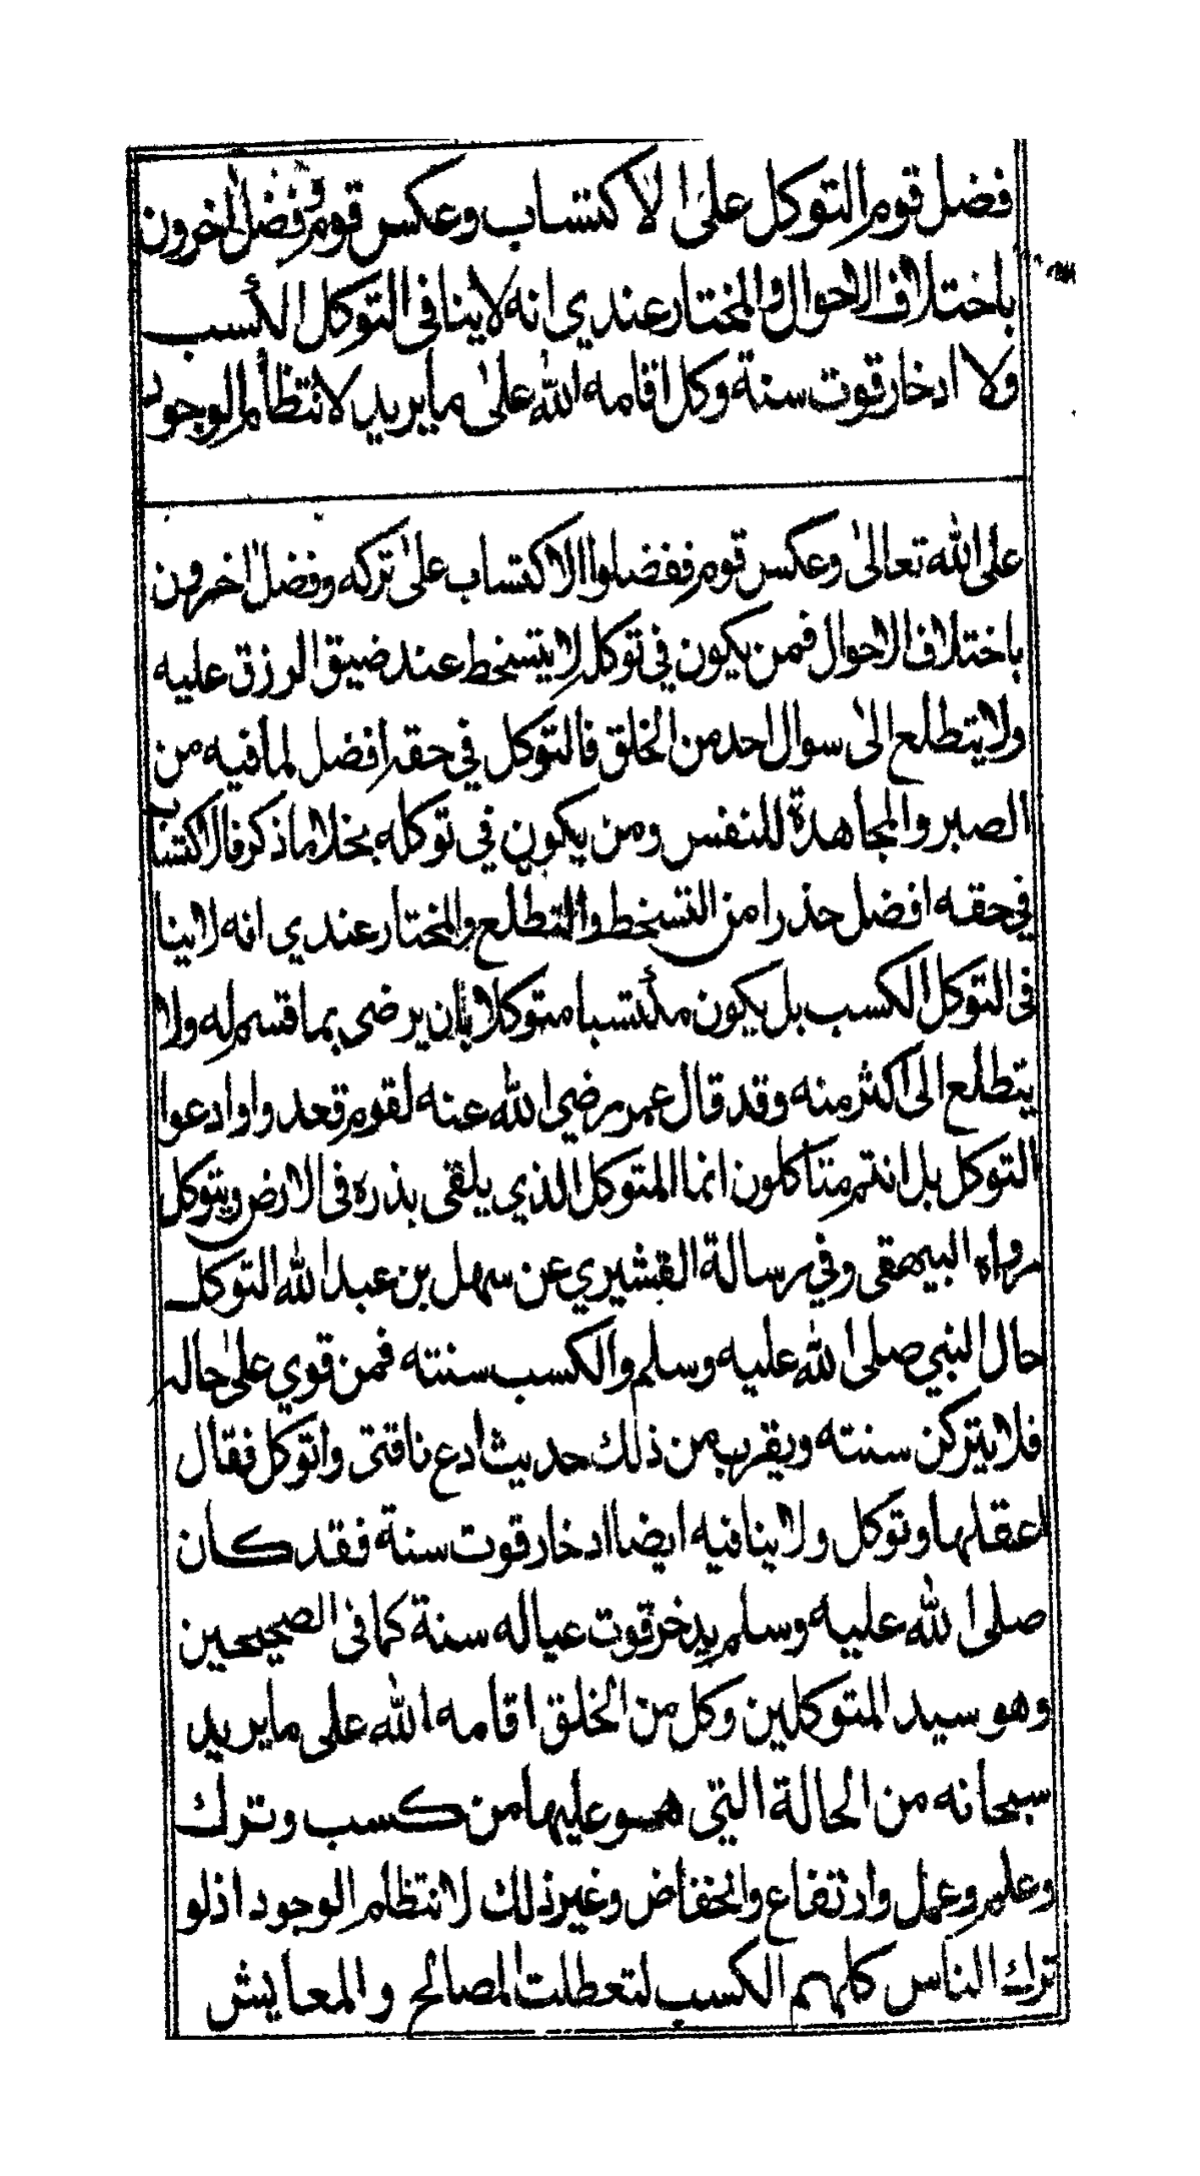 فضل قوم التوكل على الاكتساب وعكس قوم وفضل اخرون
باختلاف الاحوال والمختار عندي انه لا ينافي التوكل الكسب
ولا ادخار قوت سنة وكل اقامه الله على ما يريد لانتظام الوجود
على الله تعالى وعكس قوم ففضلوا الاكتساب على تركه وفضل اخرون
باختلاف الاحوال فمن يكون في توكله لا يتسخط عند ضيق الرزق عليه
ولا يتطلع الى سوال احد من الخلق فالتوكل في حقه افضل لما فيه من
الصبر والمجاهدة للنفس ومن يكون في توكله بخلاف ما ذكر فالاكتساب
في حقه افضل حذرا من التسخط والتطلع والمختار عندي انه لا ينا
فى التوكل الكسب بل يكون مكتسبا متوكلا بان يرضى بما قسم له ولا
يتطلع الى اكثر منه وقد قال عمر رضي الله عنه لقوم قعدوا وادعوا
التوكل بل انتم متاكلون انما المتوكل الذي يلقى بذره فى الارض ويتوكل
رواه البيهقى وفي رسالة القشيري عن سهل بن عبد الله التوكل
حال النبي صلى الله عليه وسلم والكسب سنته فمن قوي على حاله
فلا يتركن سنته ويقرب من ذلك حديث ادع ناقتى واتوكل فقال
اعقلها وتوكل ولا ينافيه ايضا ادخار قوت سنة فقد كان
صلى الله عليه وسلم يدخر قوت عياله سنة كما فى الصحيحين
وهو سيد المتوكلين وكل من الخلق اقامه الله على ما يريد
سبحانه من الحالة التي هو عليها من كسب وترك
وعلم وعمل وارتفاع وانخفاض وغير ذلك لانتظام الوجود اذ لو
ترك الناس كلهم الكسب لتعطلت المصالح والمعايش